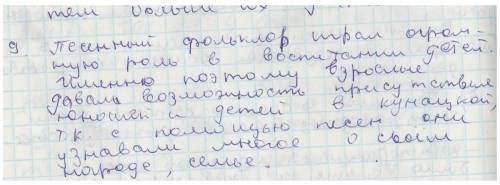 тем больше их
9. Песенный фольклор играл огром-
ную роль в воспитании детей.
Именно поэтому взрослые
давали возможность присутствия
юношей и детей в кунацкой,
т.к. с помощью песен они
узнавали многое о своим
народе, семье.